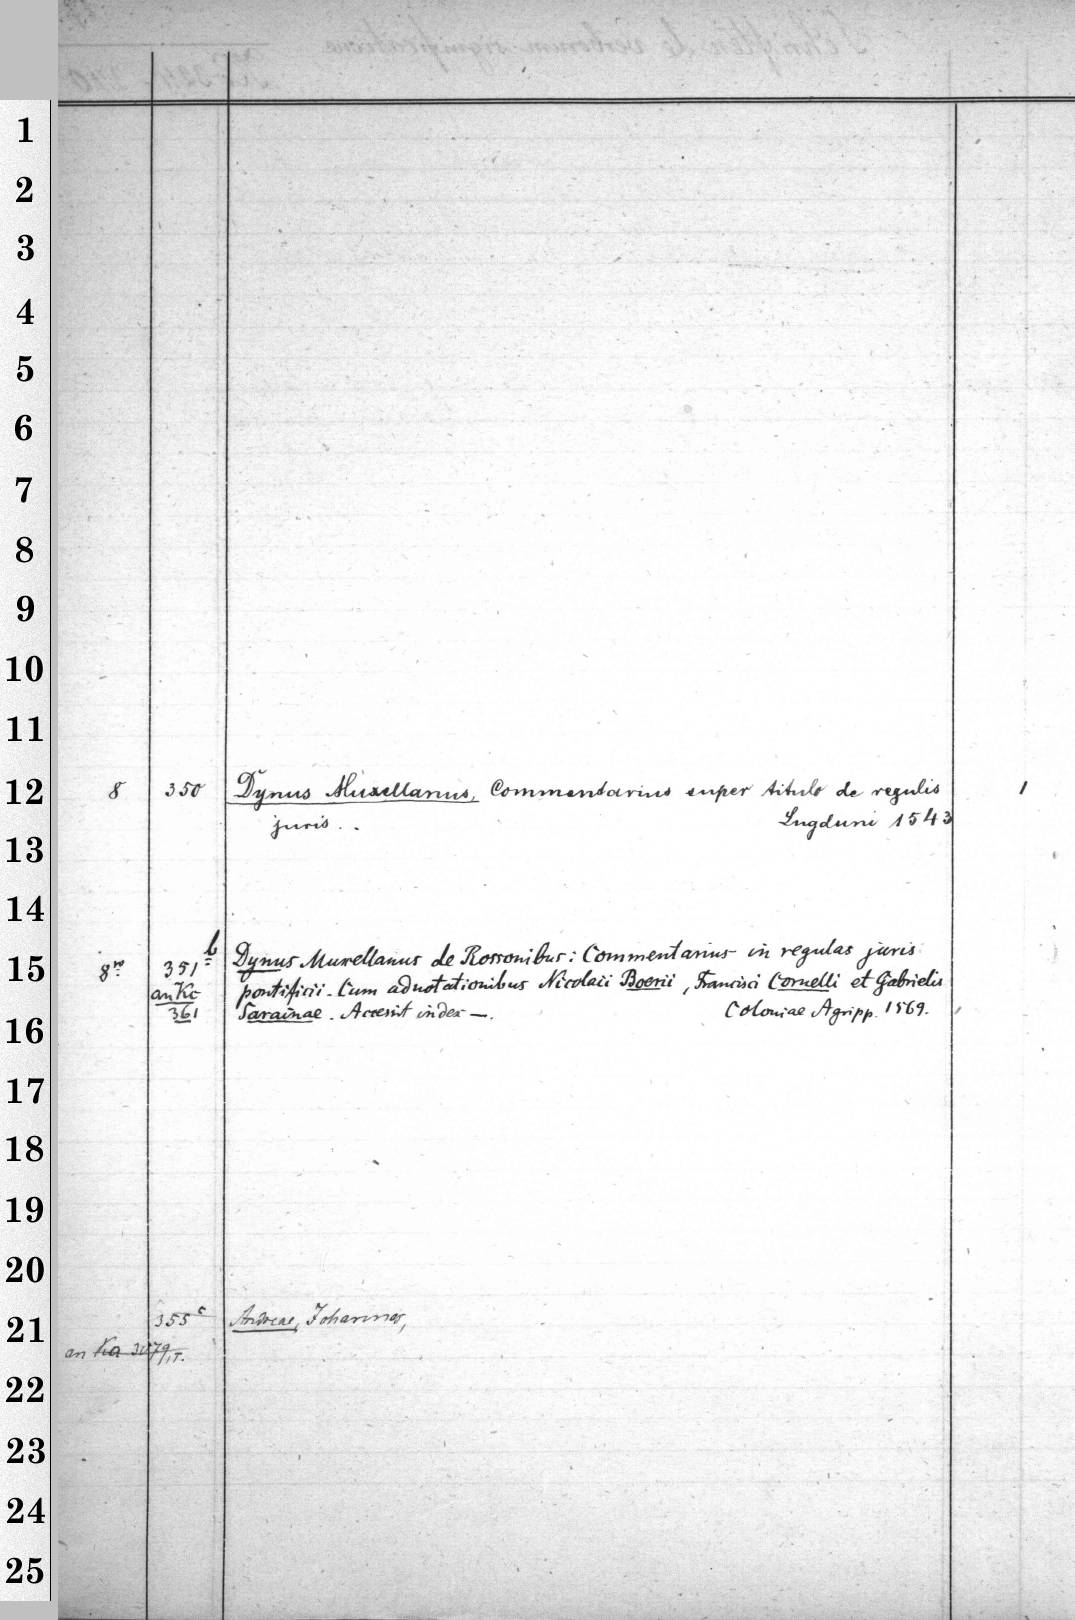 1
2
3
4
5
6
7
8
9
10
11
12
8 350 Dynus Muxellanus, Commentarius super titulo de regulis 1
juris . . Lugduni 1543
13
14
15
8vo 351 b Dynus Muxellanus de Rossonibus: Commentarius in regulas juris
an Kc pontificii. Cum adnotationibus Nicolaii Boerii, Francisci Cornelli et Gabrielis
361 Sarainae. Accessit index —. Coloniae Agripp. 1569.
16
17
18
19
20
21
355 c Andreae, Johannes,
an Ka
22
23
24
25